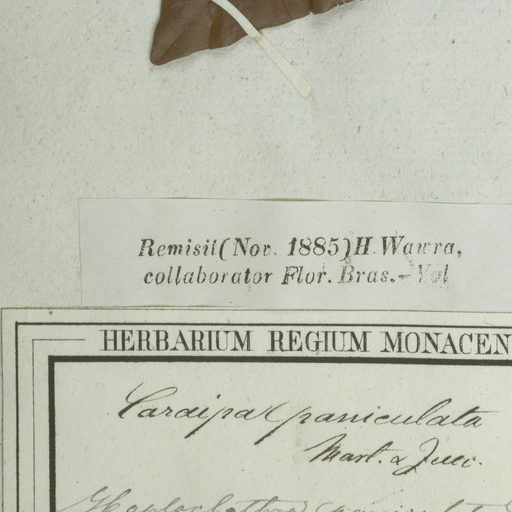 Remisit (Nov. 1885) H. Wawra,
collaborator Flor. Bras. - Vol
HERBARIUM REGIUM MONACEN
Caraipa paniculata
Mart. & Zucc.